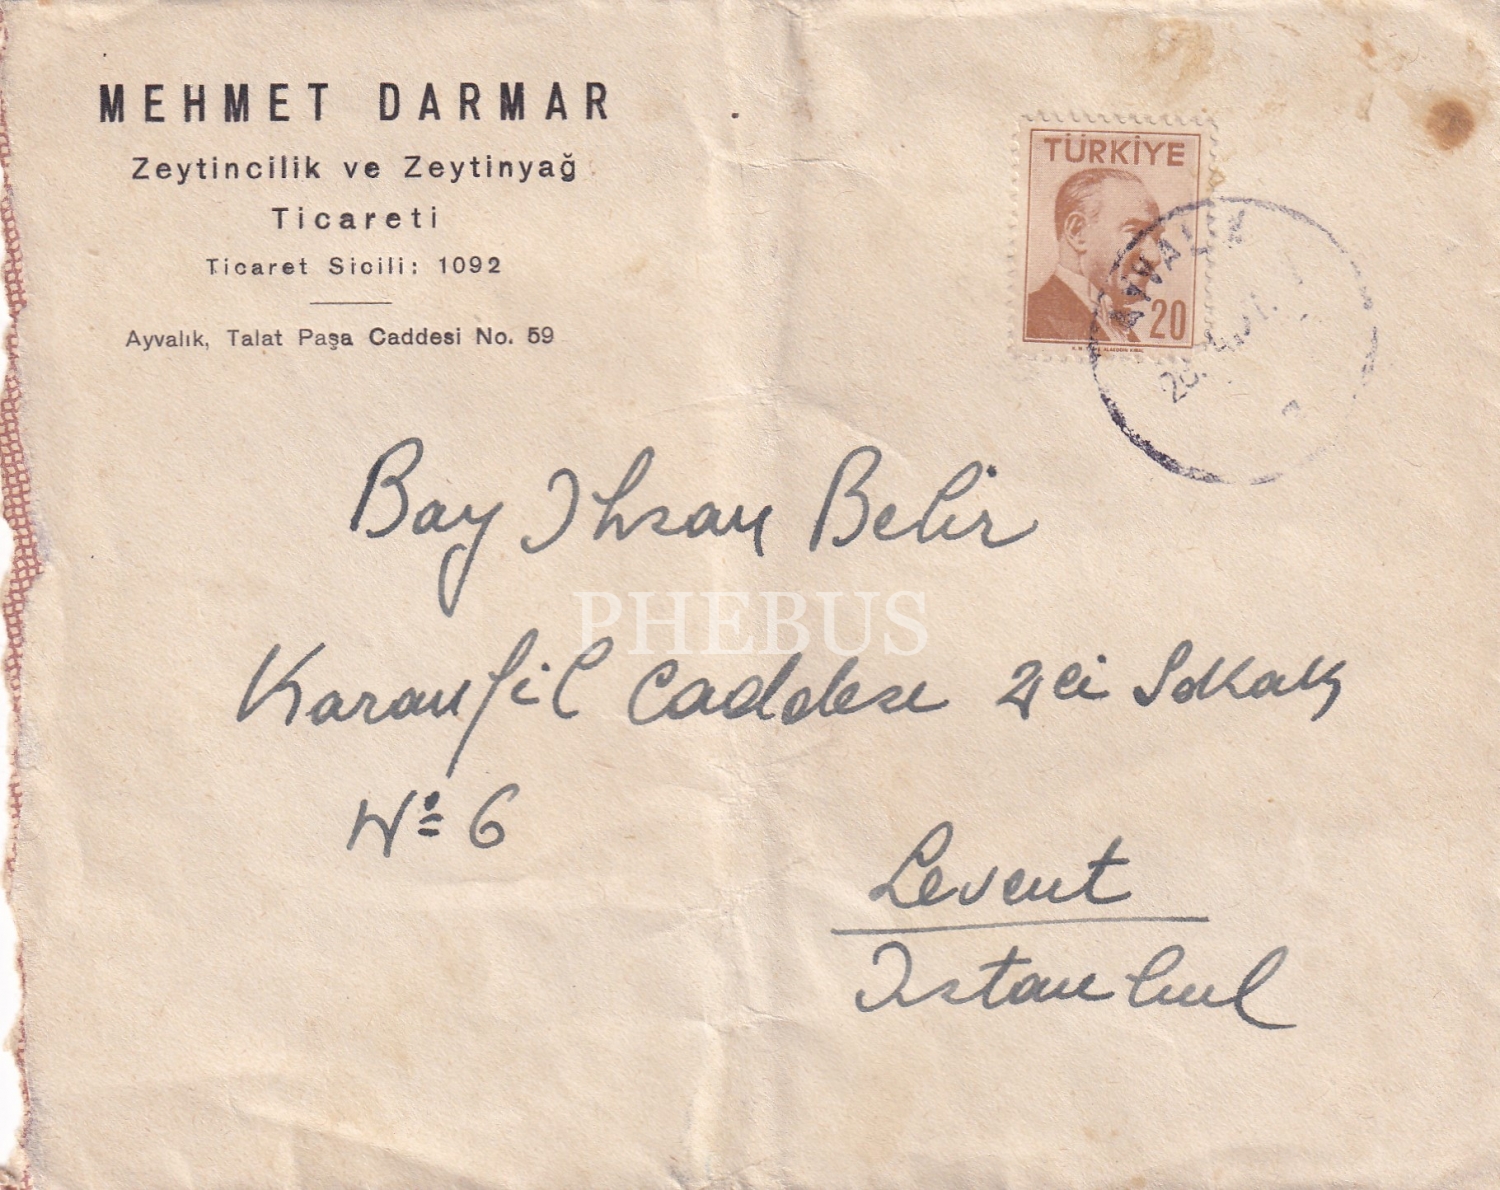 MEHMET DARMAR
Zeytincilik ve Zeytinyağ
Ticareti
Ticaret Sicili: 1092
Ayvalık, Talat Paşa Caddesi No. 59
TÜRKİYE
20
AYVALIK
Bay Ihsan Belir
PHEBUS
Karanfil Caddesi 2ci Sokak
No 6
Levent
Istanbul